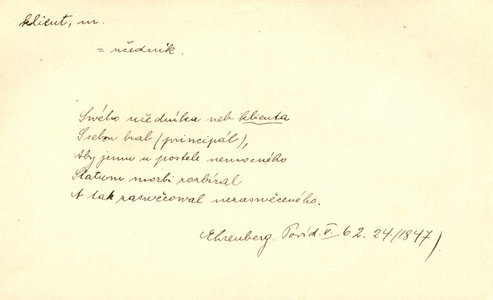 klient, m.
= učedník.
Svého učedníka neb klienta
S sebou bral (principál),
Aby jemu u postele nemocného
Statum morbi rozbíral
A tak zasvěcoval nezasvěceného.
Ehrenberg. Povíd. V. 62. 24./1847)